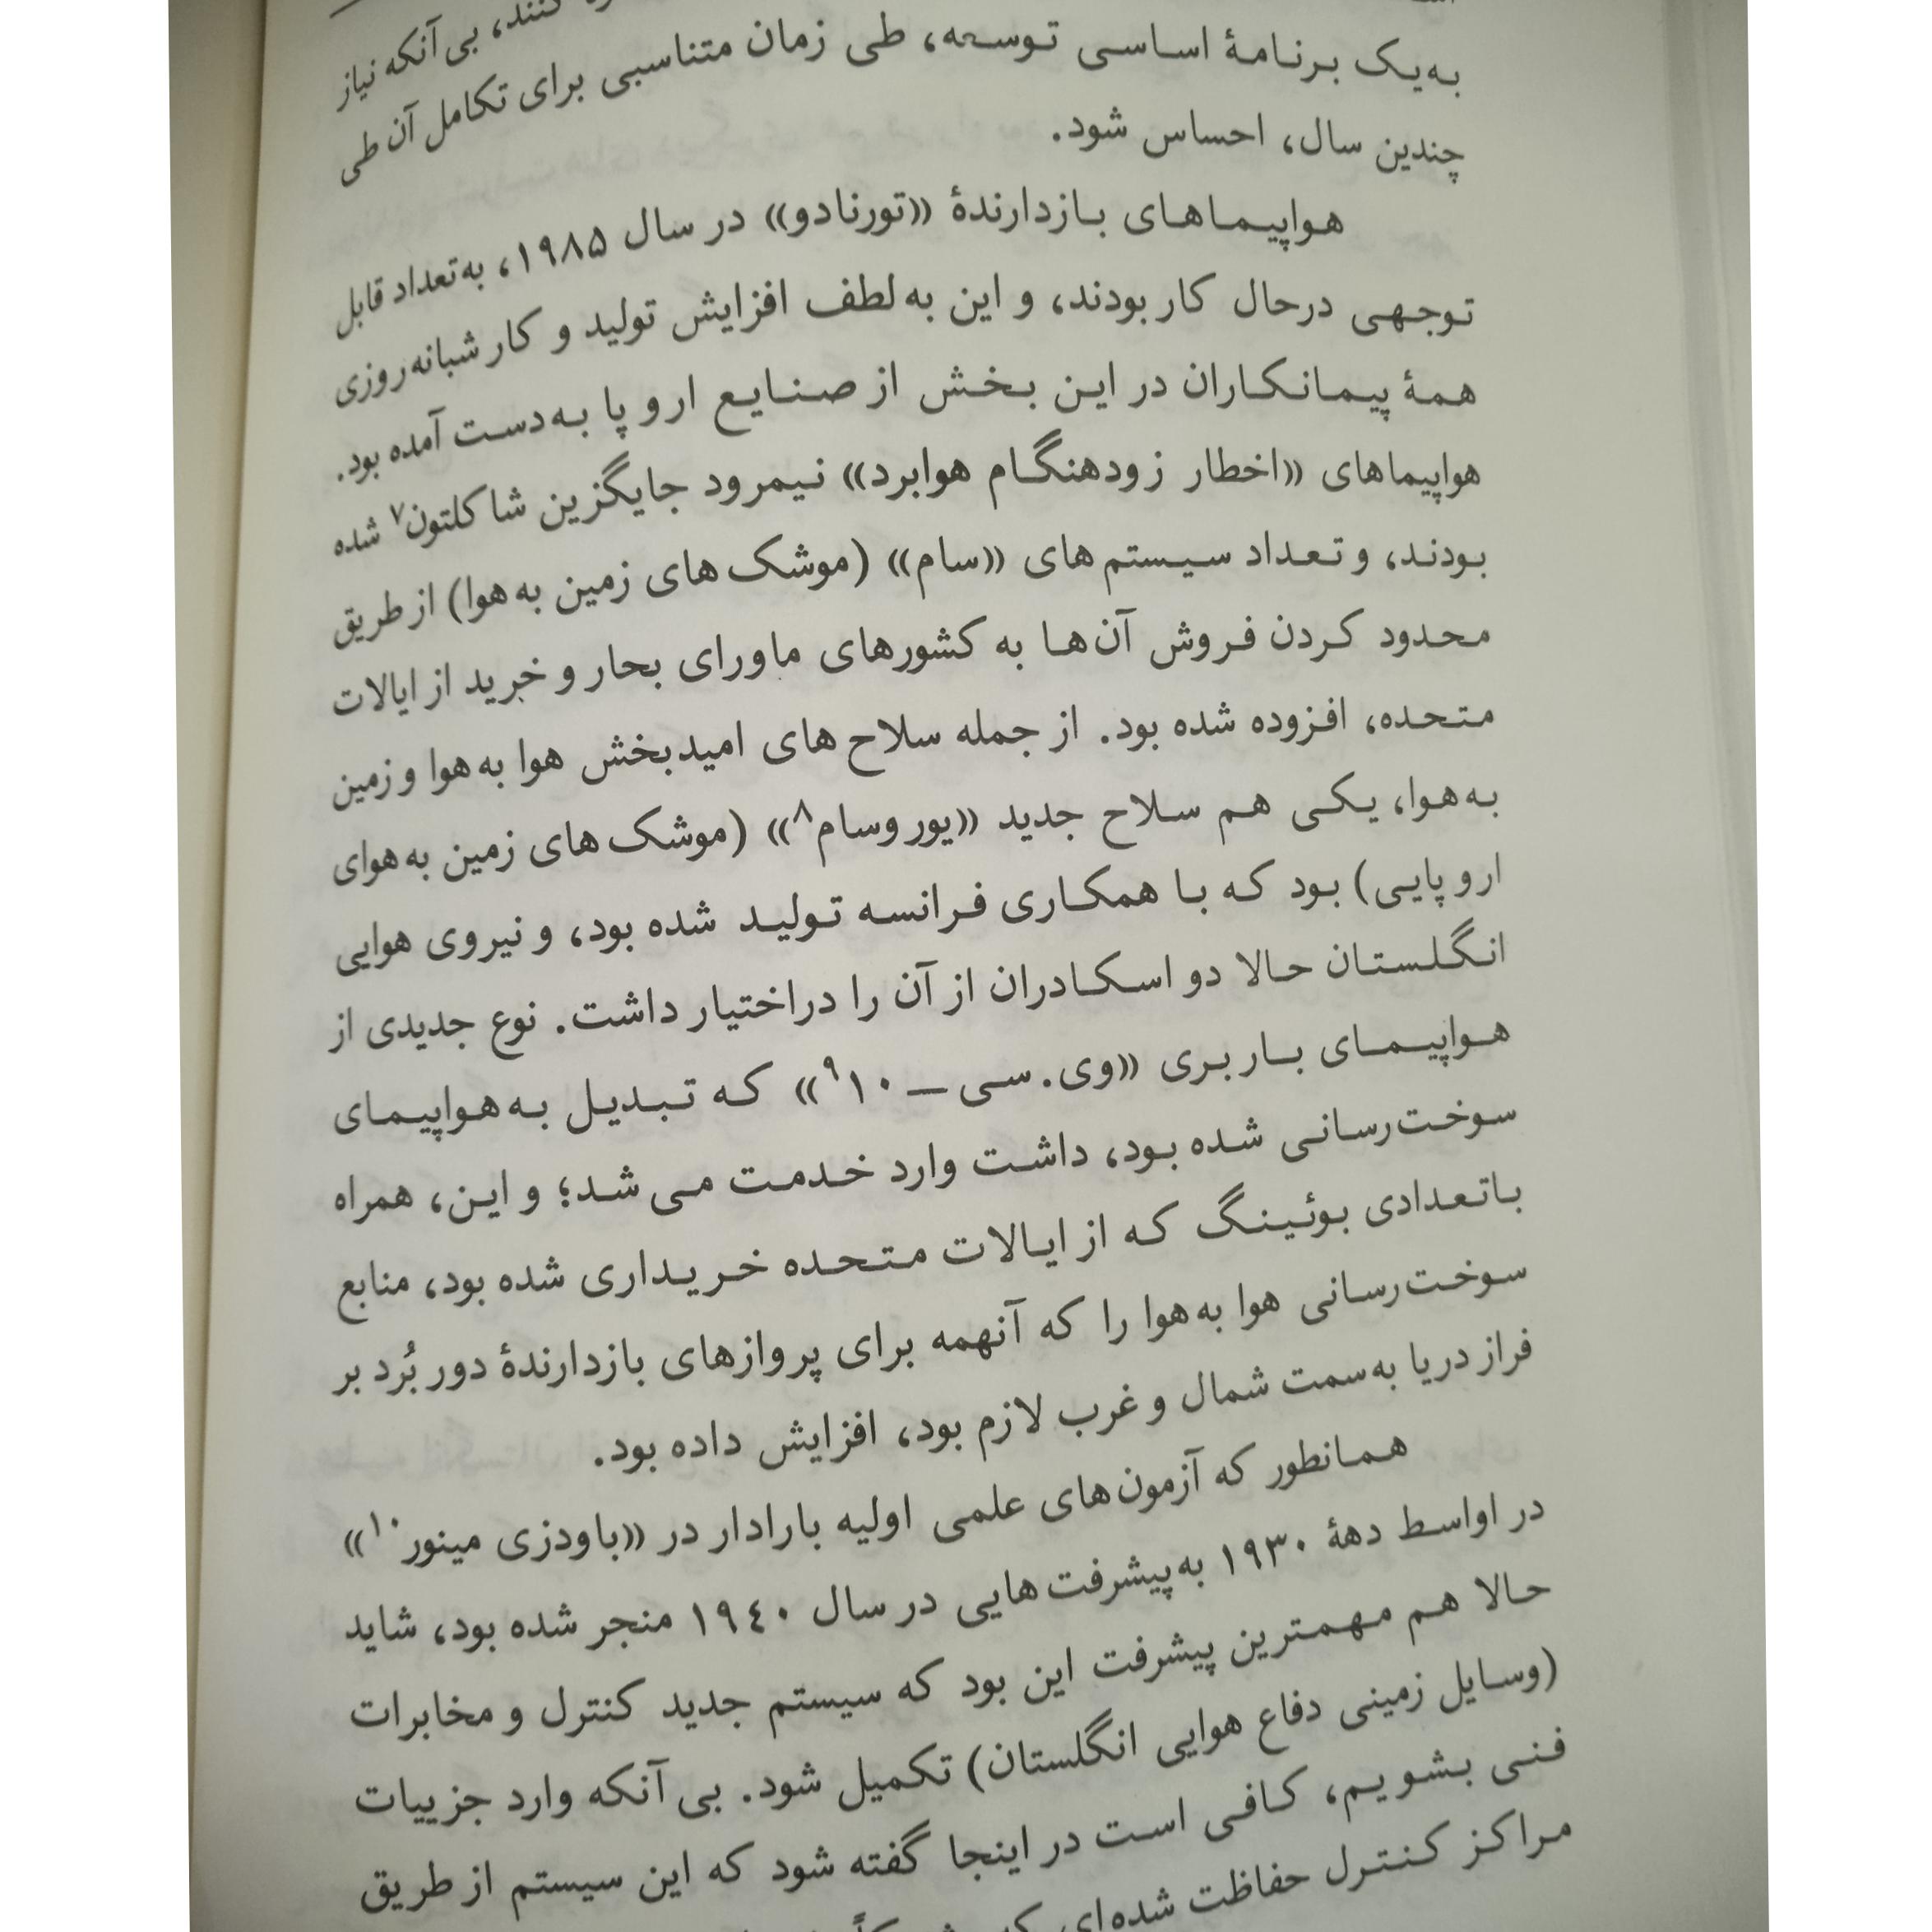 کنند، بی‌آنکه نیاز
به‌یک برنامۀ اساسی توسعه، طی زمان متناسبی برای تکامل آن طی
چندین سال، احساس شود.
هواپیماهای بازدارندۀ «تورنادو» در سال ۱۹۸۵، به‌تعداد قابل
توجهی درحال کار بودند، و این به لطف افزایش تولید و کار شبانه‌روزی
همۀ پیمانکاران در این بخش از صنایع اروپا به‌دست آمده بود.
هواپیماهای «اخطار زودهنگام هوابرد» نیمرود جایگزین شاکلتون۷ شده
بودند، و تعداد سیستم‌های «سام» (موشک‌های زمین به‌هوا) از طریق
محدود کردن فروش آن‌ها به کشورهای ماورای بحار و خرید از ایالات
متحده، افزوده شده بود. از جمله سلاح‌های امیدبخش هوا به‌هوا و زمین
به‌هوا، یکی هم سلاح جدید «یوروسام۸» (موشک‌های زمین به‌هوای
اروپایی) بود که با همکاری فرانسه تولید شده بود، و نیروی هوایی
انگلستان حالا دو اسکادران از آن را دراختیار داشت. نوع جدیدی از
هواپیمای باربری «وی.سی ــ ۱۰۹» که تبدیل به‌هواپیمای
سوخت‌رسانی شده بود، داشت وارد خدمت می‌شد؛ و این، همراه
باتعدادی بوئینگ که از ایالات متحده خریداری شده بود، منابع
سوخت‌رسانی هوا به‌هوا را که آنهمه برای پروازهای بازدارندۀ دور بُرد بر
فراز دریا به‌سمت شمال و غرب لازم بود، افزایش داده بود.
همانطور که آزمون‌های علمی اولیه بارادار در «باودزی مینور۱۰»
در اواسط دهۀ ۱۹۳۰ به‌پیشرفت‌هایی در سال ۱۹۴۰ منجر شده بود، شاید
حالا هم مهمترین پیشرفت این بود که سیستم جدید کنترل و مخابرات
(وسایل زمینی دفاع هوایی انگلستان) تکمیل شود. بی‌آنکه وارد جزییات
فنی بشویم، کافی است در اینجا گفته شود که این سیستم از طریق
مراکز کنترل حفاظت شده‌ای